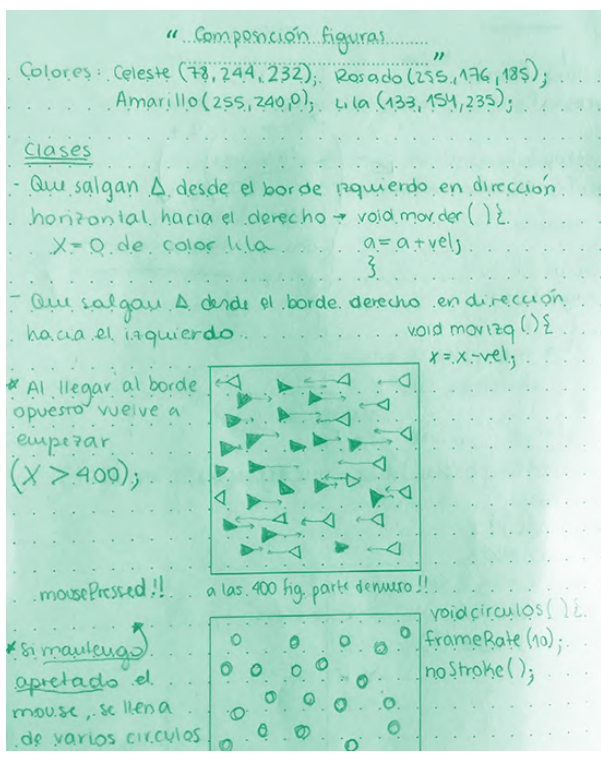 "Composición figuras"
Colores: Celeste (78, 244, 232); Rosado (255, 176, 185);
Amarillo (255, 240, 0); Lila (133, 154, 235);
Clases
- Que salgan Δ desde el borde izquierdo en dirección
horizontal hacia el derecho → void movder () {
X = 0 de color lila a = a + vel;
}
- Que salgan Δ desde el borde derecho en dirección
hacia el izquierdo void movizq () {
x = x - vel;
* Al llegar al borde
opuesto vuelve a
empezar
(X > 400);
mousePressed!! a las 400 fig. parte denuevo!!
void circulos () {
* si mantengo frameRate (10);
apretado el noStroke ();
mouse, se llena
de varios circulos